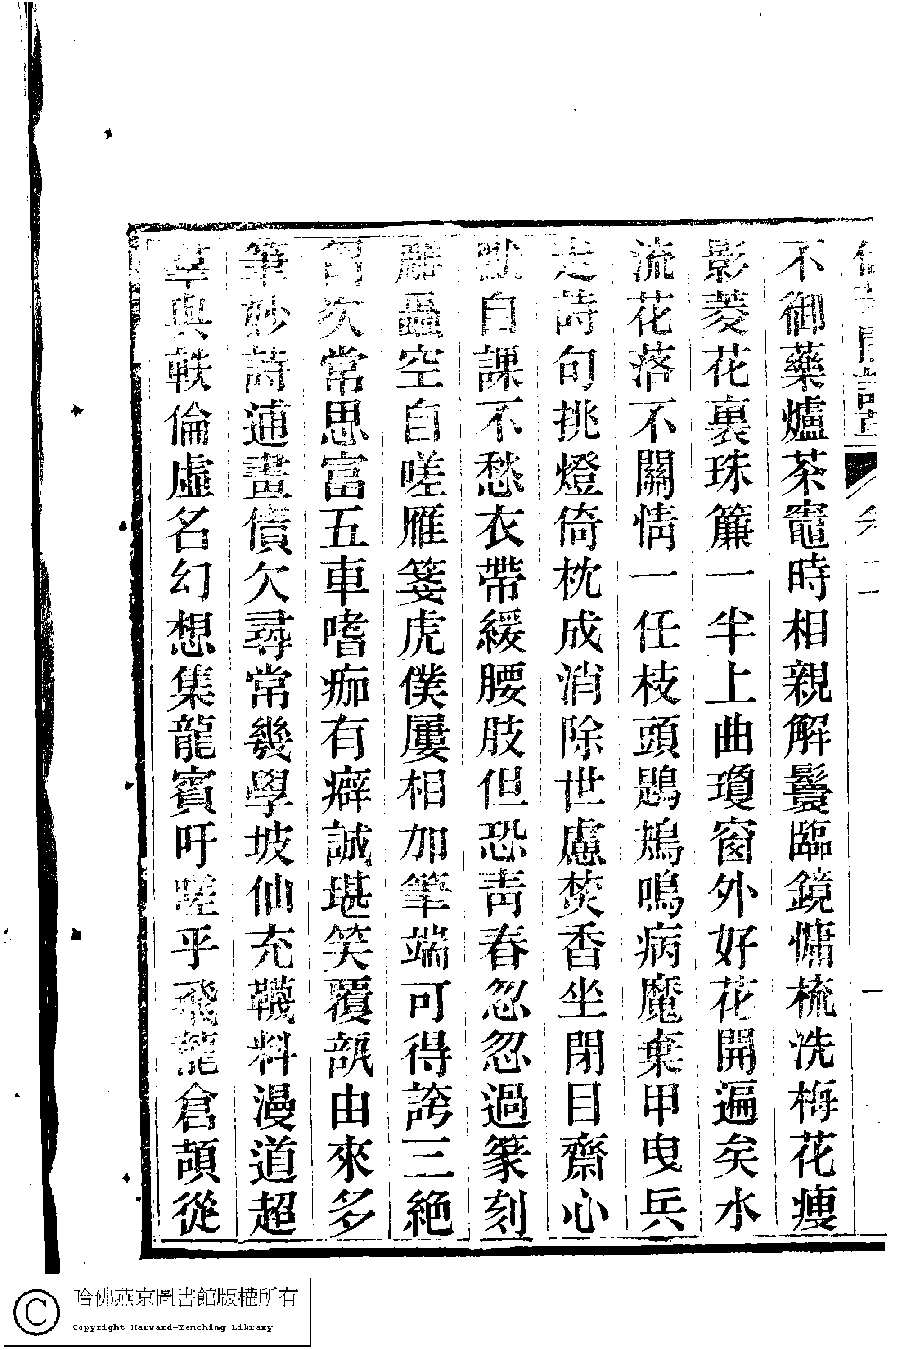 卷二
一
不御藥爐茶竈時相親解鬟臨鏡慵梳洗梅花瘦
影菱花裏珠簾一半上曲瓊窗外好花開遍矣水
流花落不關情一任枝頭鶗鴂鳴病魔棄甲曳兵
走詩句挑燈倚枕成消除世慮焚香坐閉目齋心
自課不愁衣帶緩腰肢但恐青春忽忽過篆刻
雕蟲空自嗟雁箋虎僕屢相加筆端可得誇三絶
常思富五車嗜痂有癖誠堪笑覆瓿由來多
筆妙詩逋畫債欠尋常幾學坡仙充韈料漫道超
羣與軼倫虛名幻想集龍賓吁嗟乎飛龍倉頡從
哈佛燕京圖書館版權所有
Copyright Harvard-Yenching Library